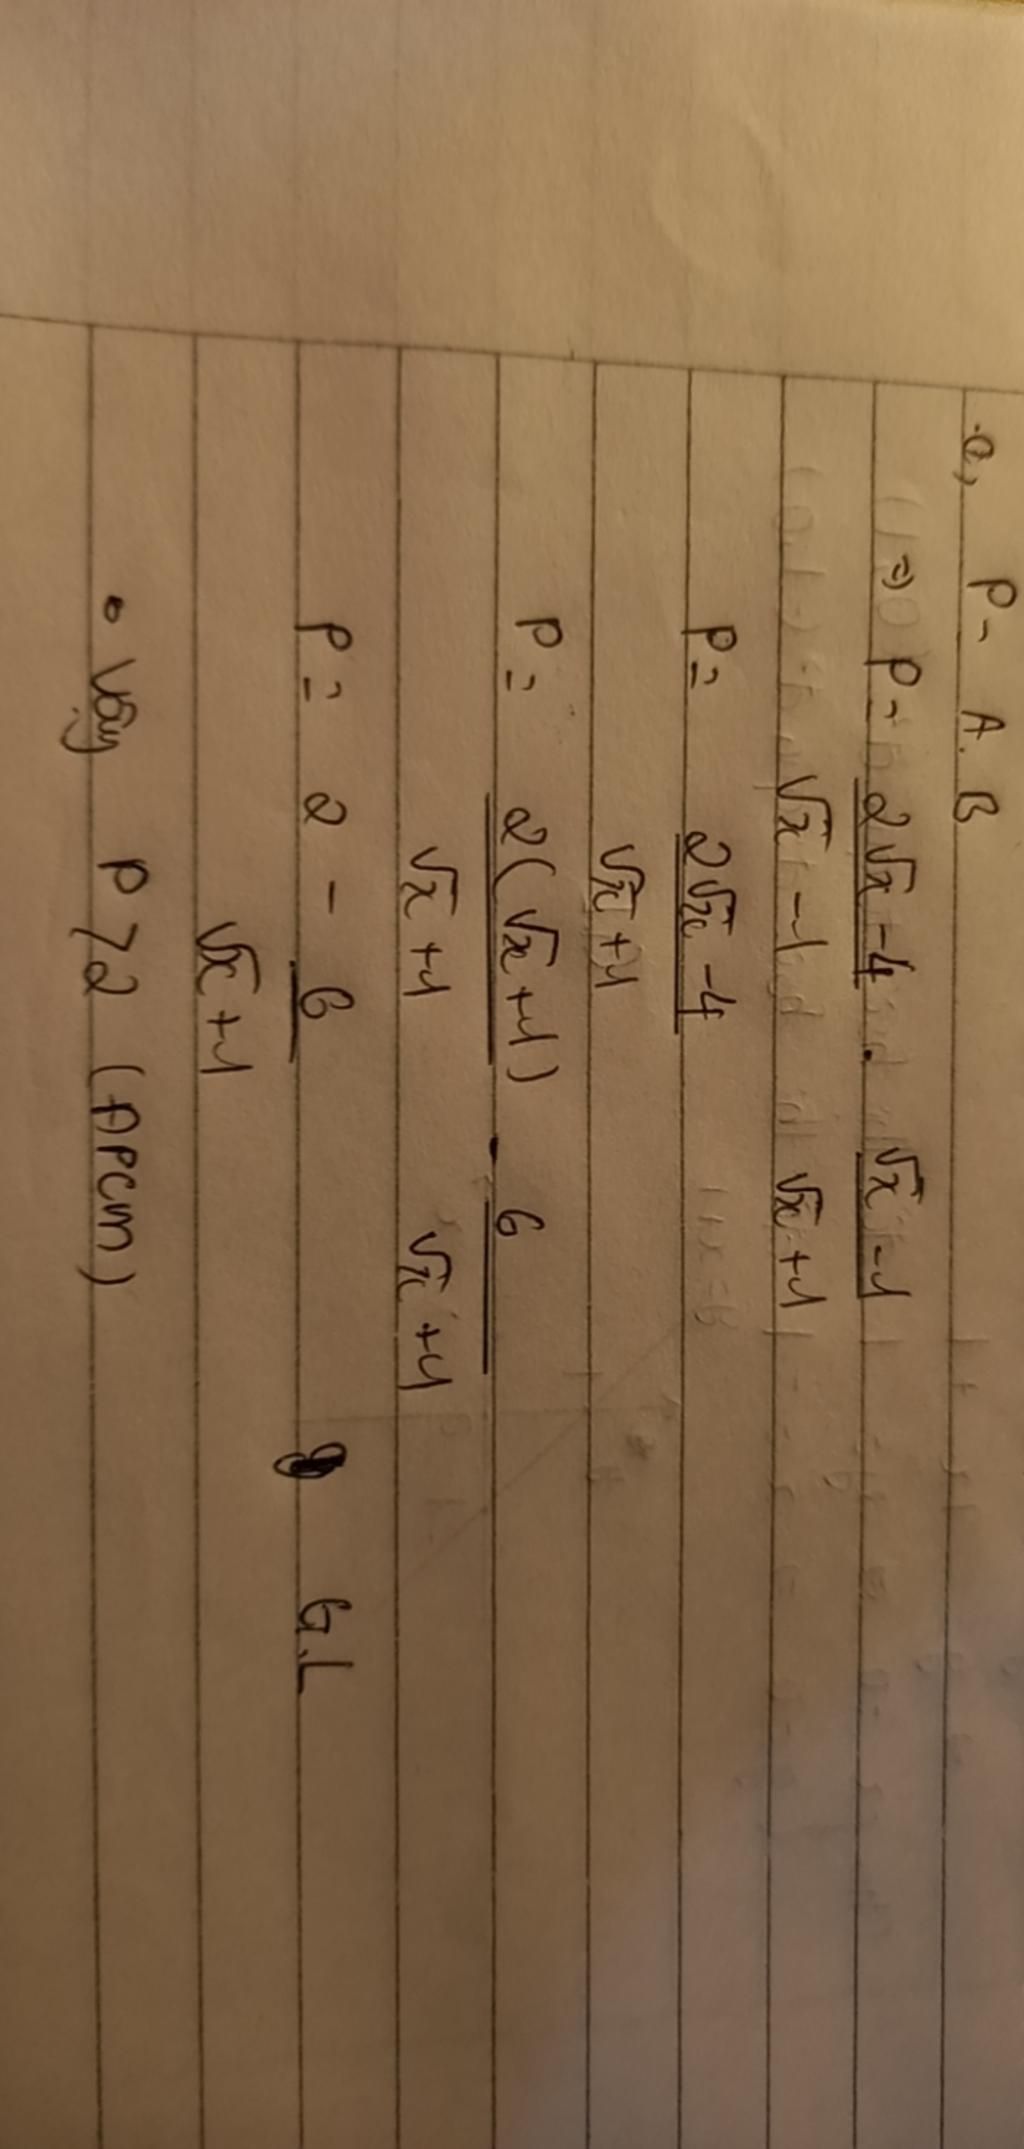 a, P = A.B
=> P = 2√x - 4 . √x - 1
√x - 1 √x + 1
P = 2√x - 4
√x + 1
P = 2(√x + 1) - 6
√x + 1 √x + 1
P = 2 - 6 G.L
√x + 1
• Vậy P > 2 (ĐPCM)